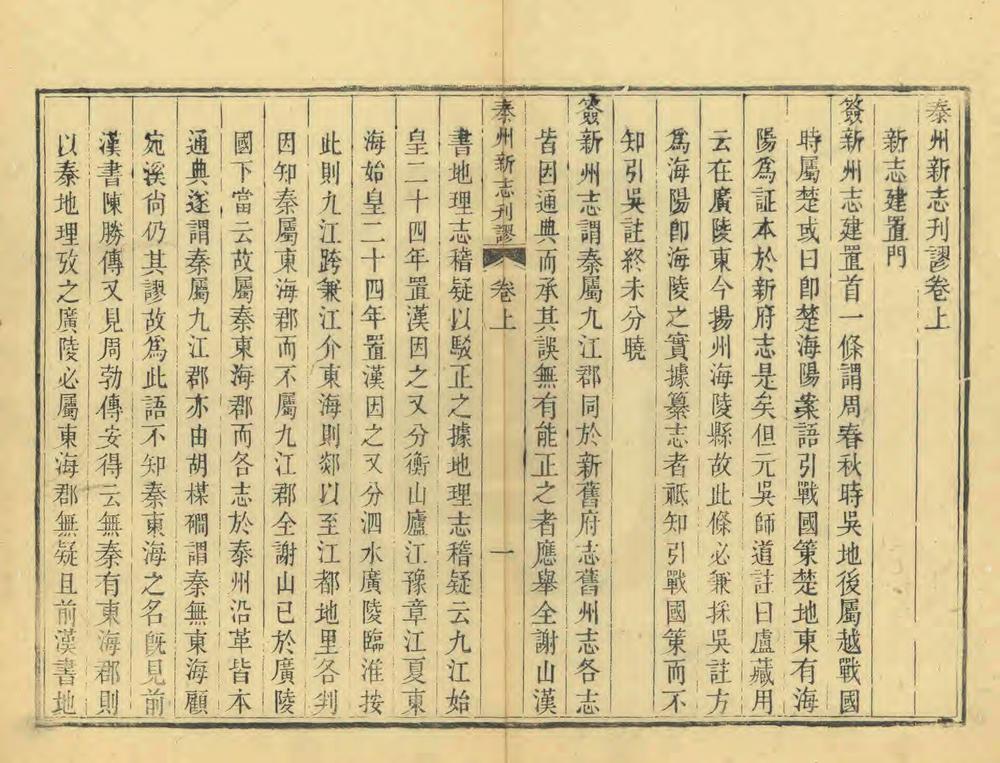 泰州新志刊謬卷上
新志建置門
簽新州志建置首一條謂周春秋時吳地後屬越戰國
時屬楚或曰卽楚海陽案語引戰國策楚地東有海
陽爲証本於新府志是矣但元吳師道註曰盧藏用
云在廣陵東今揚州海陵縣故此條必兼採吳註方
爲海陽卽海陵之實據纂志者祗知引戰國策而不
知引吳註終未分曉
簽新州志謂秦屬九江郡同於新舊府志舊州志各志
皆因通典而承其誤無有能正之者應舉全謝山漢
泰州新志刊謬 卷上 一
書地理志稽疑以駁正之據地理志稽疑云九江始
皇二十四年置漢因之又分衡山廬江豫章江夏東
海始皇二十四年置漢因之又分泗水廣陵臨淮按
此則九江跨兼江介東海則郯以至江都地里各判
因知秦屬東海郡而不屬九江郡全謝山已於廣陵
國下當云故屬秦東海郡而各志於泰州沿革皆本
通典遂謂秦屬九江郡亦由胡楳磵謂秦無東海顧
宛溪尙仍其謬故爲此語不知秦東海之名旣見前
漢書陳勝傳又見周勃傳安得云無秦有東海郡則
以秦地理攷之廣陵必屬東海郡無疑且前漢書地